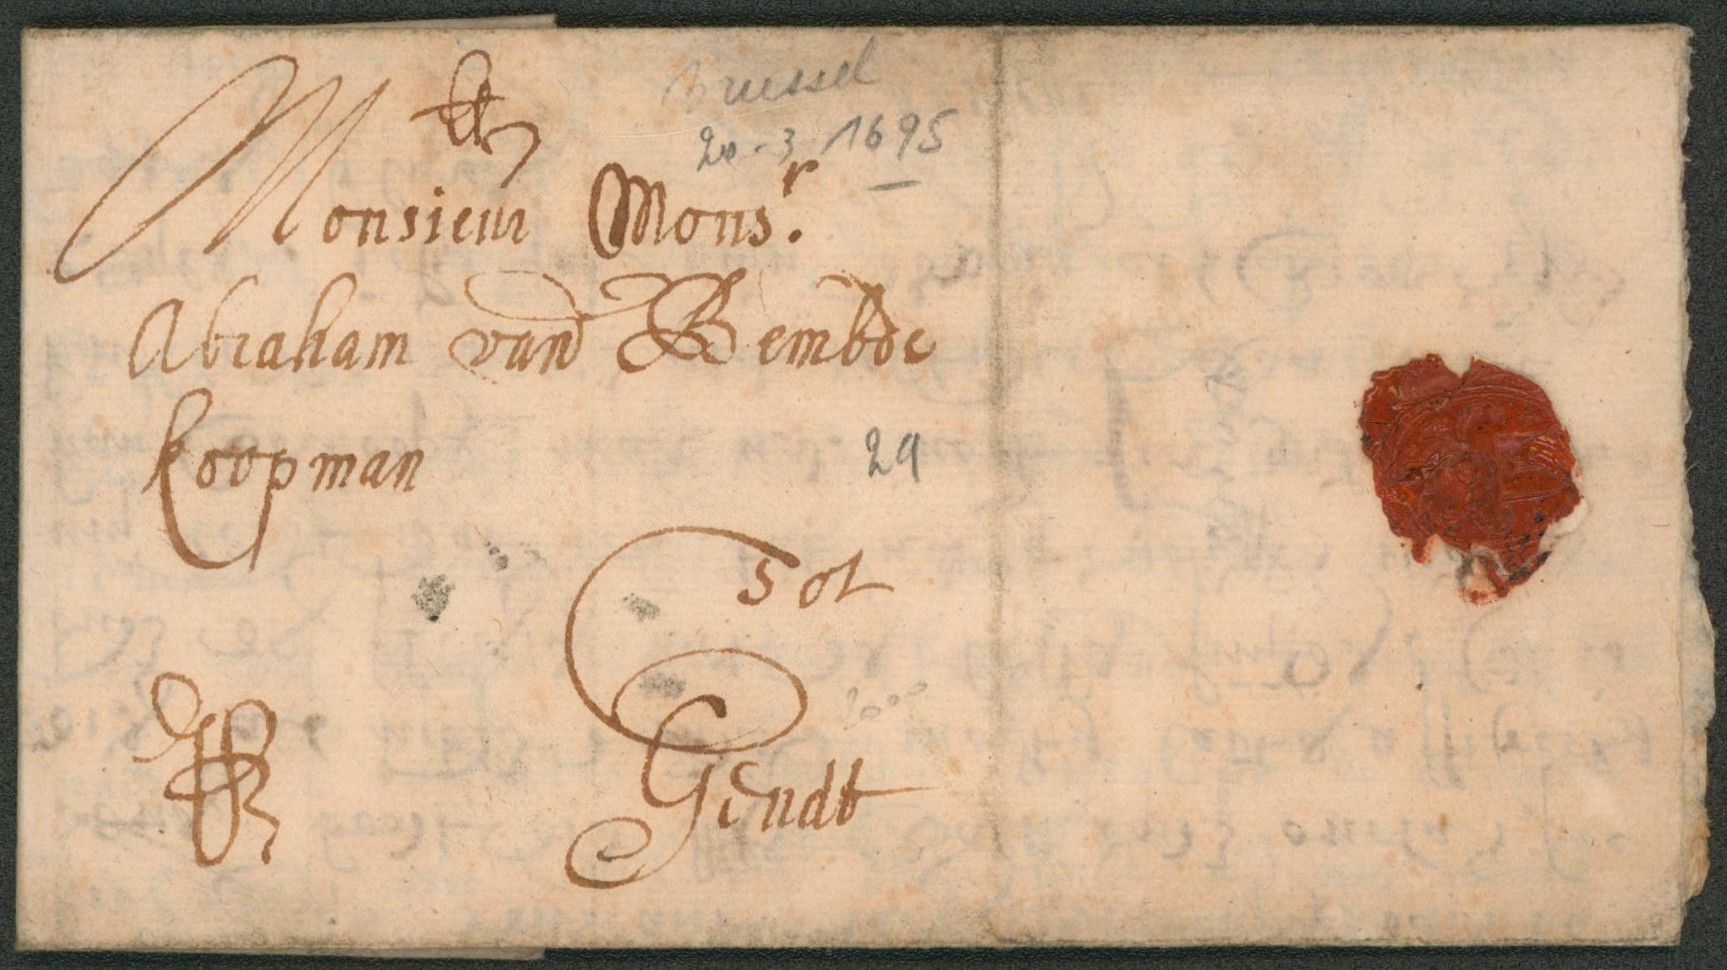 Brussel
20-3 1695
Monsieur Monsr.
Abraham vand Bemboe
Koopman
29
Tot
Gendt